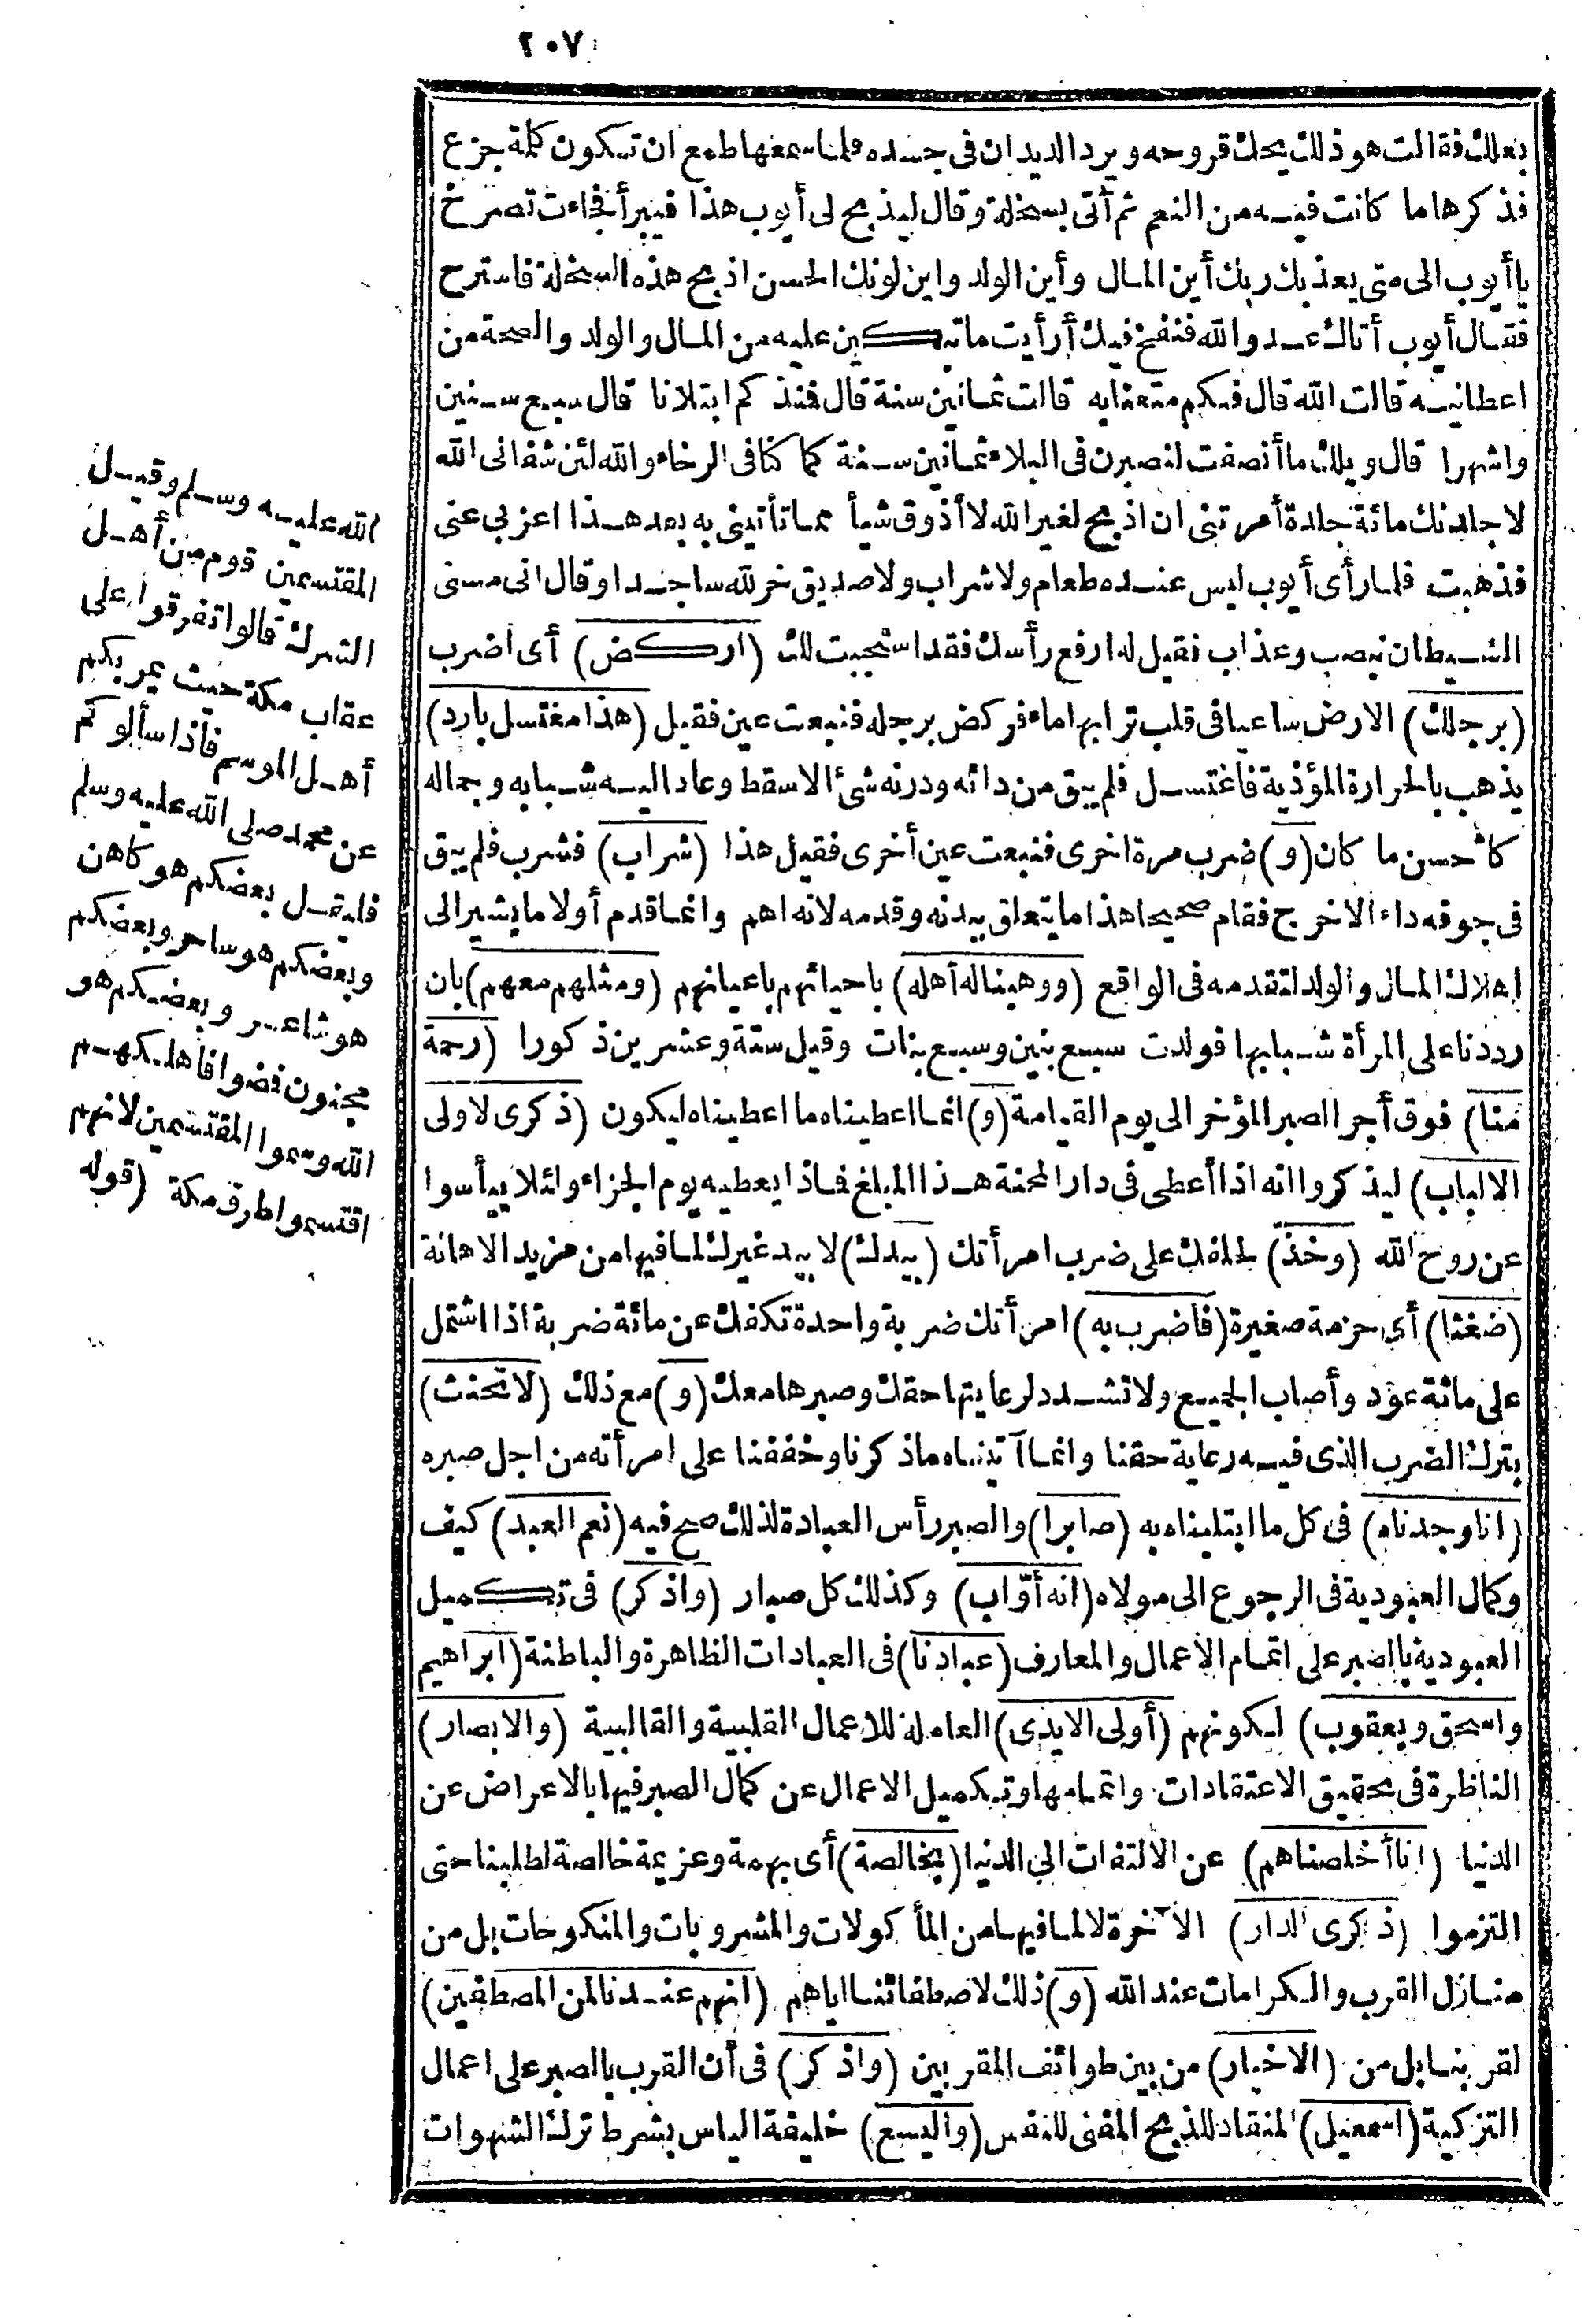 ٢٠٧
بعلك فقالت هو ذلك يحك قروحه ويرد الديدان فى جسده فلما سمعها طمع ان تكون كلمة جزع
فذكرها ما كانت فيه من النعم ثم أتى بسخلة وقال ليذبح لى أيوب هذا فيبرأ فجاءت تصرخ
يا أيوب الى متى يعذبك ربك أين المال وأين الولد واين لونك الحسن اذبح هذه السخلة فاسترح
فقال أيوب أتاك عدو الله فنفخ فيك أرأيت ما تبكين عليه من المال والولد والصحة من
اعطانيه قالت الله قال فكم متعنا به قالت ثمانين سنة قال فنذ كم ابتلانا قال سبع سنين
واشهرا قال ويلك ما أنصفت لنصبرن فى البلاء ثمانين سنة كما كنا فى الرخاء والله لئن شفانى الله
لاجلدنك مائة جلدة أمرتنى ان اذبح لغير الله لا أذوق شيأ مما تأتينى به بعد هذا اعزبى عنى
فذهبت فلما رأى أيوب ليس عنده طعام ولا شراب ولا صديق خر لله ساجدا وقال انى مسنى
الشيطان بنصب وعذاب فقيل له ارفع رأسك فقد استجيبت لك (اركض) أى اضرب
(برجلك) الارض ساعيا فى قلب ترابها ماء فركض برجله فنبعت عين فقيل (هذا مغتسل بارد)
يذهب بالحرارة المؤذية فاغتسل فلم يبق من دائه ودرنه شئ الاسقط وعاد اليه شبابه وجماله
كأحسن ما كان (و) ضرب مرة اخرى فنبعت عين أخرى فقيل هذا (شراب) فشرب فلم يبق
فى جوفه داء الاخرج فقام صحيحا هذا ما يتعلق ببدنه وقدمه لانه اهم وانما قدم أولا ما يشير الى
اهلاك المال والولد لتقدمه فى الواقع (ووهبنا له أهله) باحيائهم باعيانهم (ومثلهم معهم) بان
رددنا على المرأة شبابها فولدت سبع بنين وسبع بنات وقيل ستة وعشرين ذكورا (رحمة
منا) فوق أجر الصبر المؤخر الى يوم القيامة (و) انما اعطيناه ما اعطيناه ليكون (ذكرى لاولى
الالباب) ليذكروا انه اذا أعطى فى دار المحنة هذا المبلغ فماذا يعطيه يوم الجزاء ولئلا ييأسوا
عن روح الله (وخذ) لحلفك على ضرب امرأتك (بيدك) لا بيد غيرك لما فيها من مزيد الاهانة
(ضغثا) أى حزمة صغيرة (فاضرب به) امرأتك ضربة واحدة تكفك عن مائة ضربة اذا اشتمل
على مائة عود وأصاب الجميع ولا تشدد لرعايتها حقك وصبرها معك (و) مع ذلك (لا تحنث)
بترك الضرب الذى فيه رعاية حقنا وانما آتيناه ما ذكرنا وخففنا على امرأته من اجل صبره
(انا وجدناه) فى كل ما ابتليناه به (صابرا) والصبر رأس العبادة لذلك صح فيه (نعم العبد) كيف
وكمال العبودية فى الرجوع الى مولاه (انه أوّاب) وكذلك كل صبار (واذكر) فى تكميل
العبودية بالصبر على اتمام الاعمال والمعارف (عبادنا) فى العبادات الظاهرة والباطنة (ابراهيم
واسحق ويعقوب) لكونهم (أولى الايدى) العاملة للاعمال القلبية والقالبية (والابصار)
الناظرة فى تحقيق الاعتقادات واتمامها وتكميل الاعمال عن كمال الصبر فيها بالاعراض عن
الدنيا (انا أخلصناهم) عن الالتفات الى الدنيا (بخالصة) أى بهمة وعزيمة خالصة لطلبنا حتى
التزموا (ذكرى الدار) الآخرة لا لما فيها من المأكولات والمشروبات والمنكوحات بل من
منازل القرب والكرامات عند الله (و) ذلك لاصطفائنا اياهم (انهم عندنا لمن المصطفين)
لقربنا بل من (الاخيار) من بين طوائف المقربين (واذكر) فى أن القرب بالصبر على اعمال
التزكية (اسمعيل) المنقاد للذبح المفنى للنفس (واليسع) خليفة الياس بشرط ترك الشهوات
الله عليه وسلم وقيل
المقتسمين قوم من أهل
الشرك قالوا تفرقوا على
عقاب مكة حيث يمر بكم
أهل الموسم فاذا سألوكم
عن محمد صلى الله عليه وسلم
فليقل بعضكم هو كاهن
وبعضكم هو ساحر وبعضكم
هو شاعر وبعضكم هو
مجنون فمضوا فأهلكهم
الله وسموا المقتسمين لانهم
اقتسموا طرق مكة (قوله